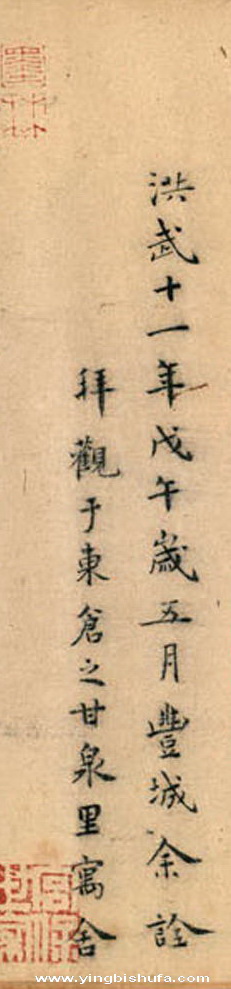 洪武十一年戊午歲五月豐城余詮
拜觀于東倉之甘泉里寓舍
www.yingbishufa.com